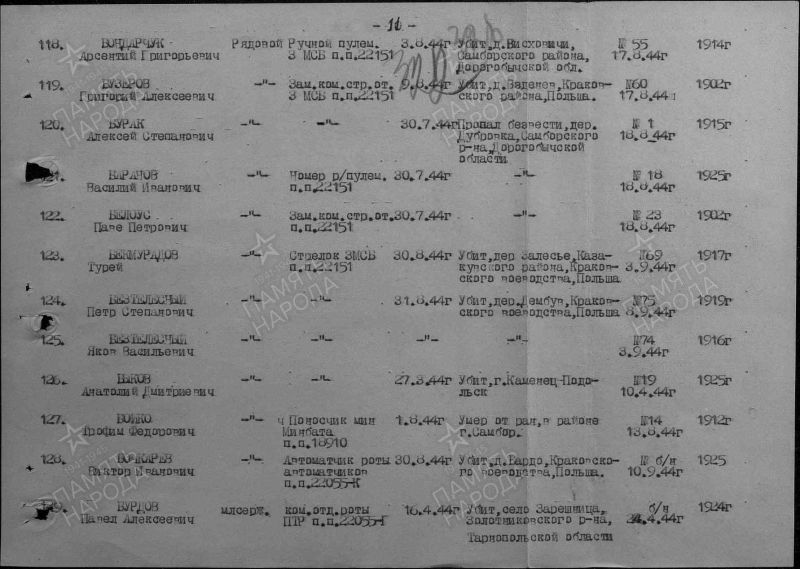 - 16 -
118. БОНДАРЧУК Рядовой Ручной пулем. 3.8.44г Убит,д.Висховичи, № 55 1914г
Арсентий Григорьевич 3 МСБ п.п.22151 Самборского района, 17.8.44г
Дорогобычской обл.
119. БУЗЕРОВ -"- Зам.ком.стр.от. 9.8.44г Убит,д.Вэденев,Краков- №60 1902г
Григорий Алексеевич 3 МСБ п.п.22151 ского района,Польша. 17.8.44г
120. БУРАК -"- -"- 30.7.44г Пропал безвести,дер. № 1 1915г
Алексей Степанович Дубровка,Самборского 18.8.44г
р-на,Дорогобычской
области
121. БАРАНОВ -"- Номер р/пулем. 30.7.44г -"- № 18 1925г
Василий Иванович п.п.22151 18.8.44г
122. БЕЛОУС -"- Зам.ком.стр.от. 30.7.44г -"- № 23 1902г
Паве Петрович п.п.22151 18.8.44г
123. БЕКМУРАДОВ -"- Стрелок 3МСБ 30.8.44г Убит,дер Залесье,Каза- №69 1917г
Турей п.п.22151 кувского района,Краков- 3.9.44г
ского воеводства,Польша
124. БЕЗТЕЛЕСНЫЙ -"- -"- 31.8.44г Убит,дер.Дембув,Краков- №75 1919г
Петр Степанович ского воеводства,Польша 8.9.44г
125. БЕЗТЕЛЕСНЫЙ -"- -"- -"- -"- №74 1916г
Яков Васильевич 3.9.44г
126. БЫКОВ -"- -"- 27.3.44г Убит,г.Каменец-Подо- №19 1925г
Анатолий Дмитриевич льск 10.4.44г
127. БОЙКО -"- Ч Поносчик мин 1.8.44г Умер от ран,в районе №14 1912г
Трофим Федорович Минбата г.Самбор. 13.8.44г
п.п.18910
128. БОЧКАРЕВ -"- Автоматчик роты 30.8.44г Убит,д.Бардо,Краковско- № б/н 1925
Виктор Иванович автоматчиков го воеводства,Польша. 10.9.44г
п.п.22055-К
БУРДОВ млсерж. ком.отд.роты 16.4.44г Убит,село Зарешница, б/н 1924г
Павел Алексеевич ПТР п.п.22055-Г Золотниковского р-на, 24.4.44г
Тарнопольской области
ПАМЯТЬ НАРОДА